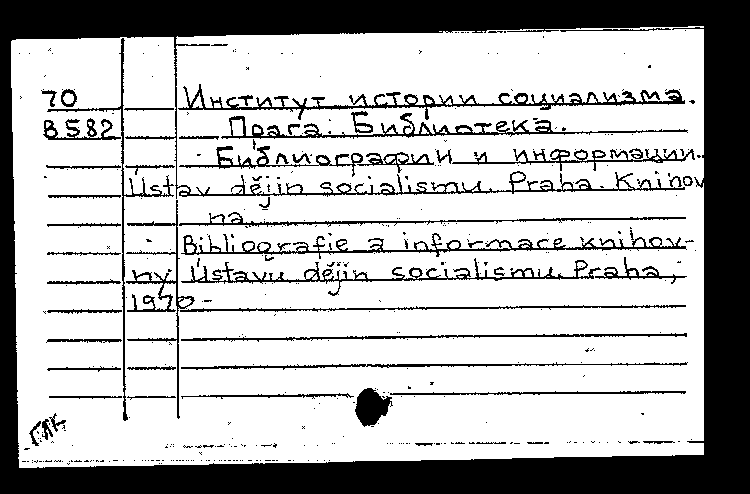 70 Институт истории социализма.
B582 Прага. Библиотека.
Библиографии и информации.
Ústav dějin socialismu. Praha. Knihov
na.
Bibliografie a informace knihov-
ny Ústavu dějin socialismu. Praha,
1970-